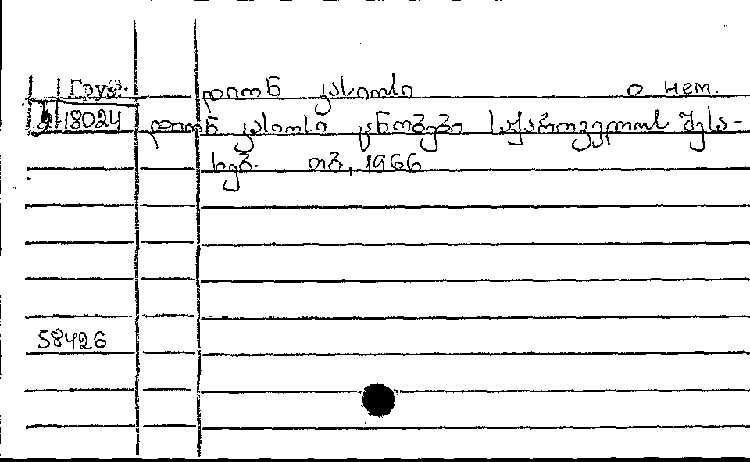 Груз. დიონ კასიოსი о нем.
2-18024 დიონ კასიოსი ცნობები საქართველოს შესა-
ხებ. თბ, 1966
58426